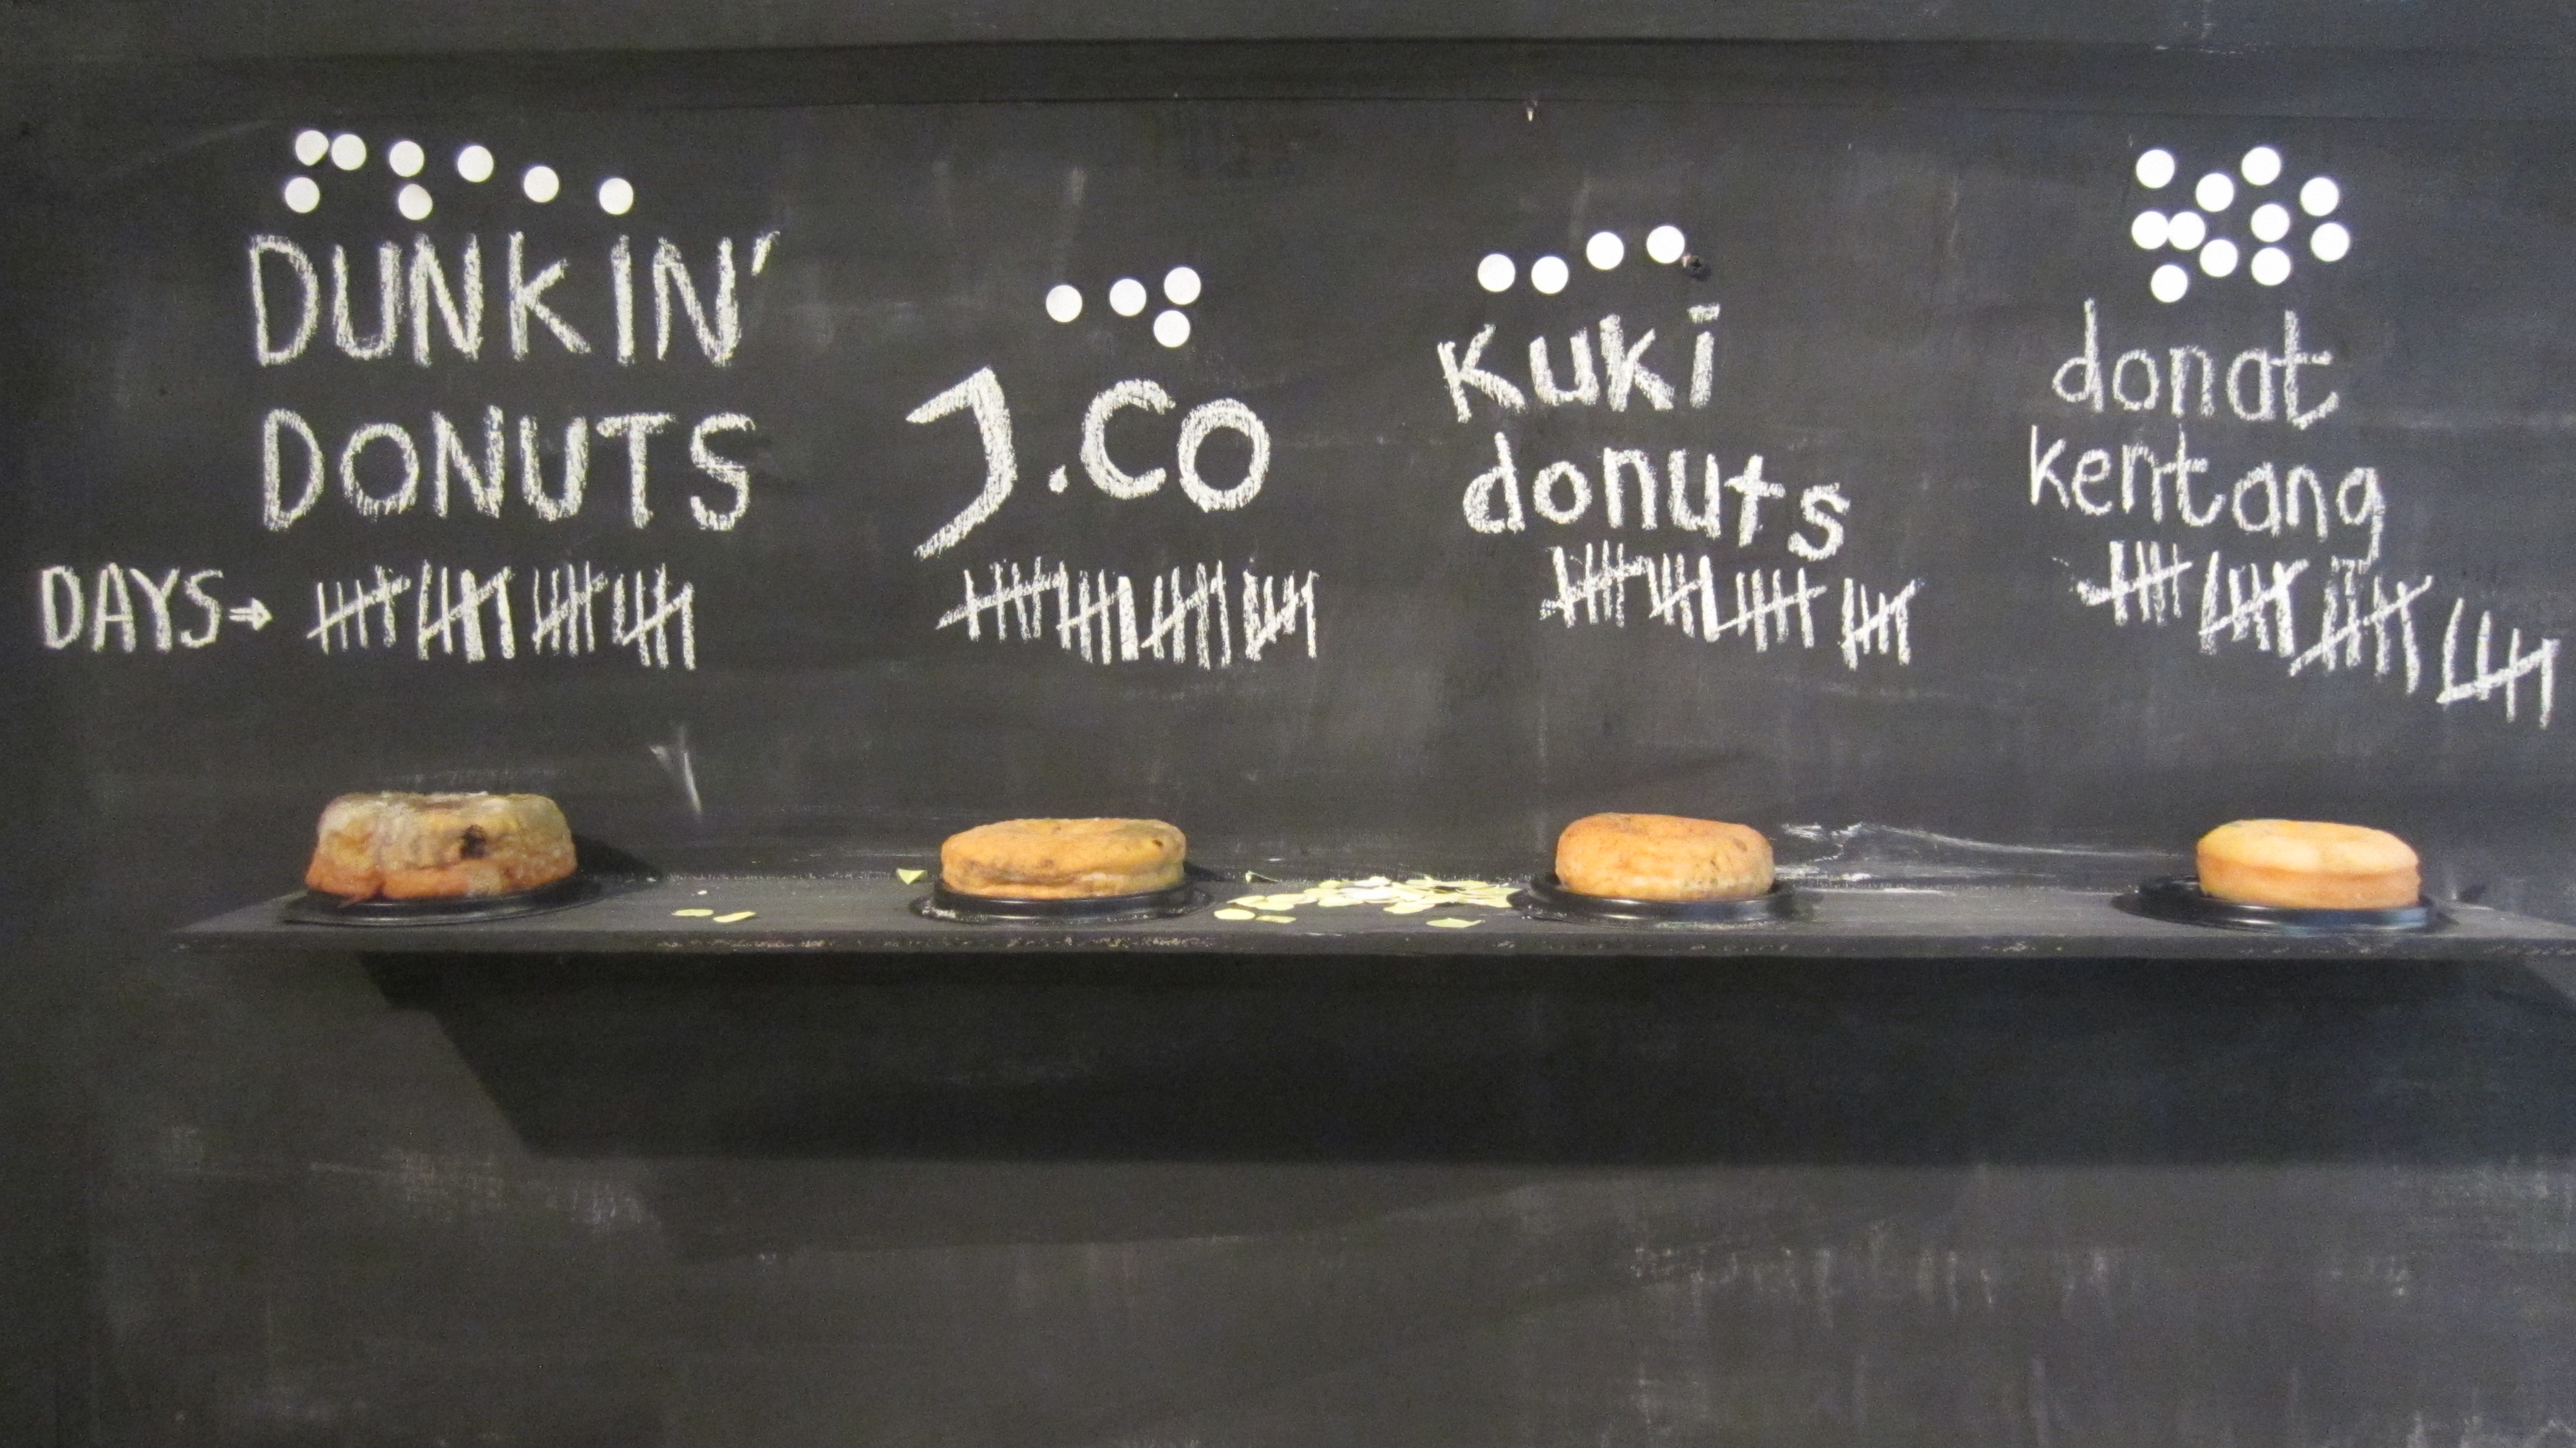 DUNKIN'
DONUTS
J.CO
KUKI
donuts
donat
kentang
DAYS⇒